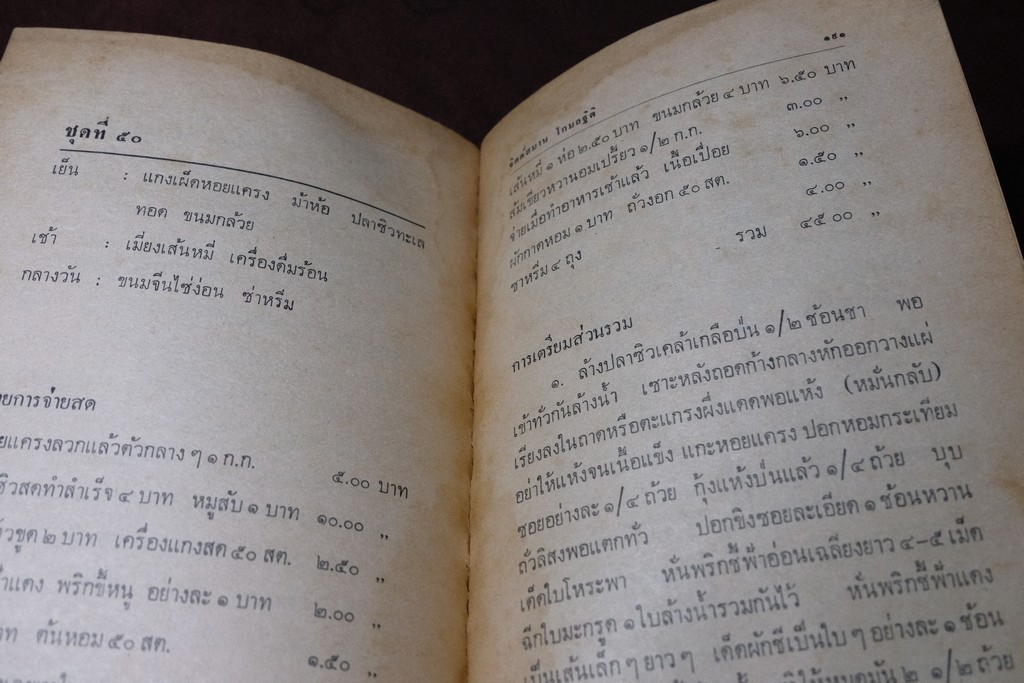 ชุดที่ ๕๐
เย็น : แกงเผ็ดหอยแครง ม้าห้อ ปลาซิวทะเล
ทอด ขนมกล้วย
เช้า : เมี่ยงเส้นหมี่ เครื่องดื่มร้อน
กลางวัน : ขนมจีนไซ่ง่อน ซ่าหริ่ม
ยการจ่ายสด
ยแครงลวกแล้วตัวกลาง ๆ ๑ ก.ก. ๕.๐๐ บาท
ซิวสดทำสำเร็จ ๔ บาท หมูสับ ๑ บาท ๑๐.๐๐ ,,
วขูด ๒ บาท เครื่องแกงสด ๕๐ สต. ๒.๕๐ ,,
แดง พริกขี้หนู อย่างละ ๑ บาท ๒.๐๐ ,,
ต้นหอม ๕๐ สต. ๑.๕๐ ,,
๑๙๑
เส้นหมี่ ๑ ห่อ ๒.๕๐ บาท ขนมกล้วย ๔ บาท ๖.๕๐ บาท
ส้มเขียวหวานอมเปรี้ยว ๑/๒ ก.ก. ๓.๐๐ ,,
จ่ายเมื่อทำอาหารเช้าแล้ว เนื้อเปื่อย ๖.๐๐ ,,
ผักกาดหอม ๑ บาท ถั่วงอก ๕๐ สต. ๑.๕๐ ,,
ซาหริ่ม ๔ ถุง ๔.๐๐ ,,
รวม ๔๕ ๐๐ ,,
การเตรียมส่วนรวม
๑. ล้างปลาซิวเคล้าเกลือป่น ๑/๒ ช้อนชา พอ
เข้าทั่วกันล้างน้ำ เซาะหลังถอดก้างกลางหักออกวางแผ่
เรียงลงในถาดหรือตะแกรงผึ่งแดดพอแห้ง (หมั่นกลับ)
อย่าให้แห้งจนเนื้อแข็ง แกะหอยแครง ปอกหอมกระเทียม
ซอยอย่างละ ๑/๔ ถ้วย กุ้งแห้งป่นแล้ว ๑/๔ ถ้วย บุบ
ถั่วลิสงพอแตกทั่ว ปอกขิงซอยละเอียด ๑ ช้อนหวาน
เด็ดใบโหระพา หั่นพริกชี้ฟ้าอ่อนเฉลียงยาว ๔-๕ เม็ด
ฉีกใบมะกรูด ๑ ใบล้างน้ำรวมกันไว้ หั่นพริกชี้ฟ้าแดง
เป็นเส้นเล็ก ๆ ยาว ๆ เด็ดผักชีเป็นใบ ๆ อย่างละ ๑ ช้อน
๒ ๑/๒ ถ้วย